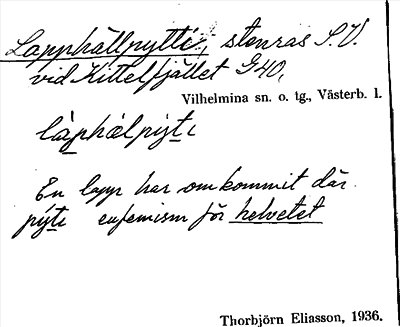 Lapphällpytti, stenras S.V.
vid Kittelfjället G40,
Vilhelmina sn. o. tg., Västerb. l.
làphælpýti
En lapp har omkommit där.
pýti eufemism för helvetet
Thorbjörn Eliasson, 1936.